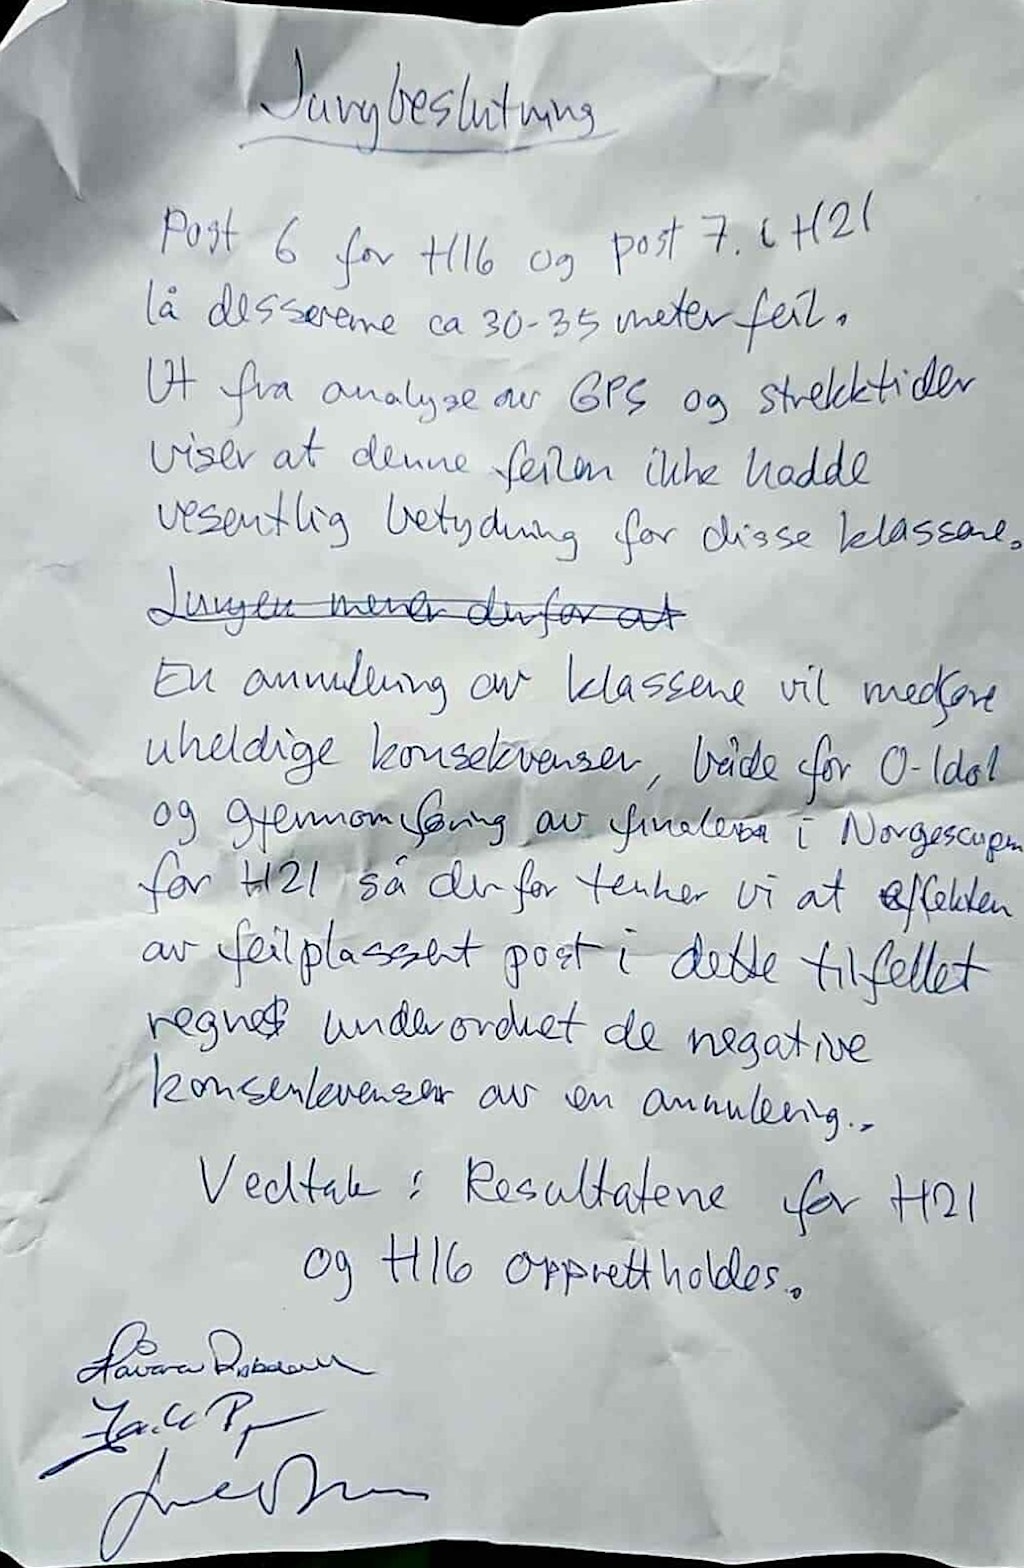 Jurybeslutning
Post 6 for H16 og post 7. i H21
lå dessverre ca 30-35 meter feil.
Ut fra analyse av GPS og strekktider
viser at denne feilen ikke hadde
vesentlig betydning for disse klassene.
Juryen mener derfor at
En annulering av klassene vil medføre
uheldige konsekvenser, både for O-Idol
og gjennomføring av finalen i Norgescupen
for H21 så derfor tenker vi at effekten
av feilplassert post i dette tilfellet
regnes underordnet de negative
konsenkvenser av en annulering.
Vedtak: Resultatene for H21
og H16 opprettholdes.